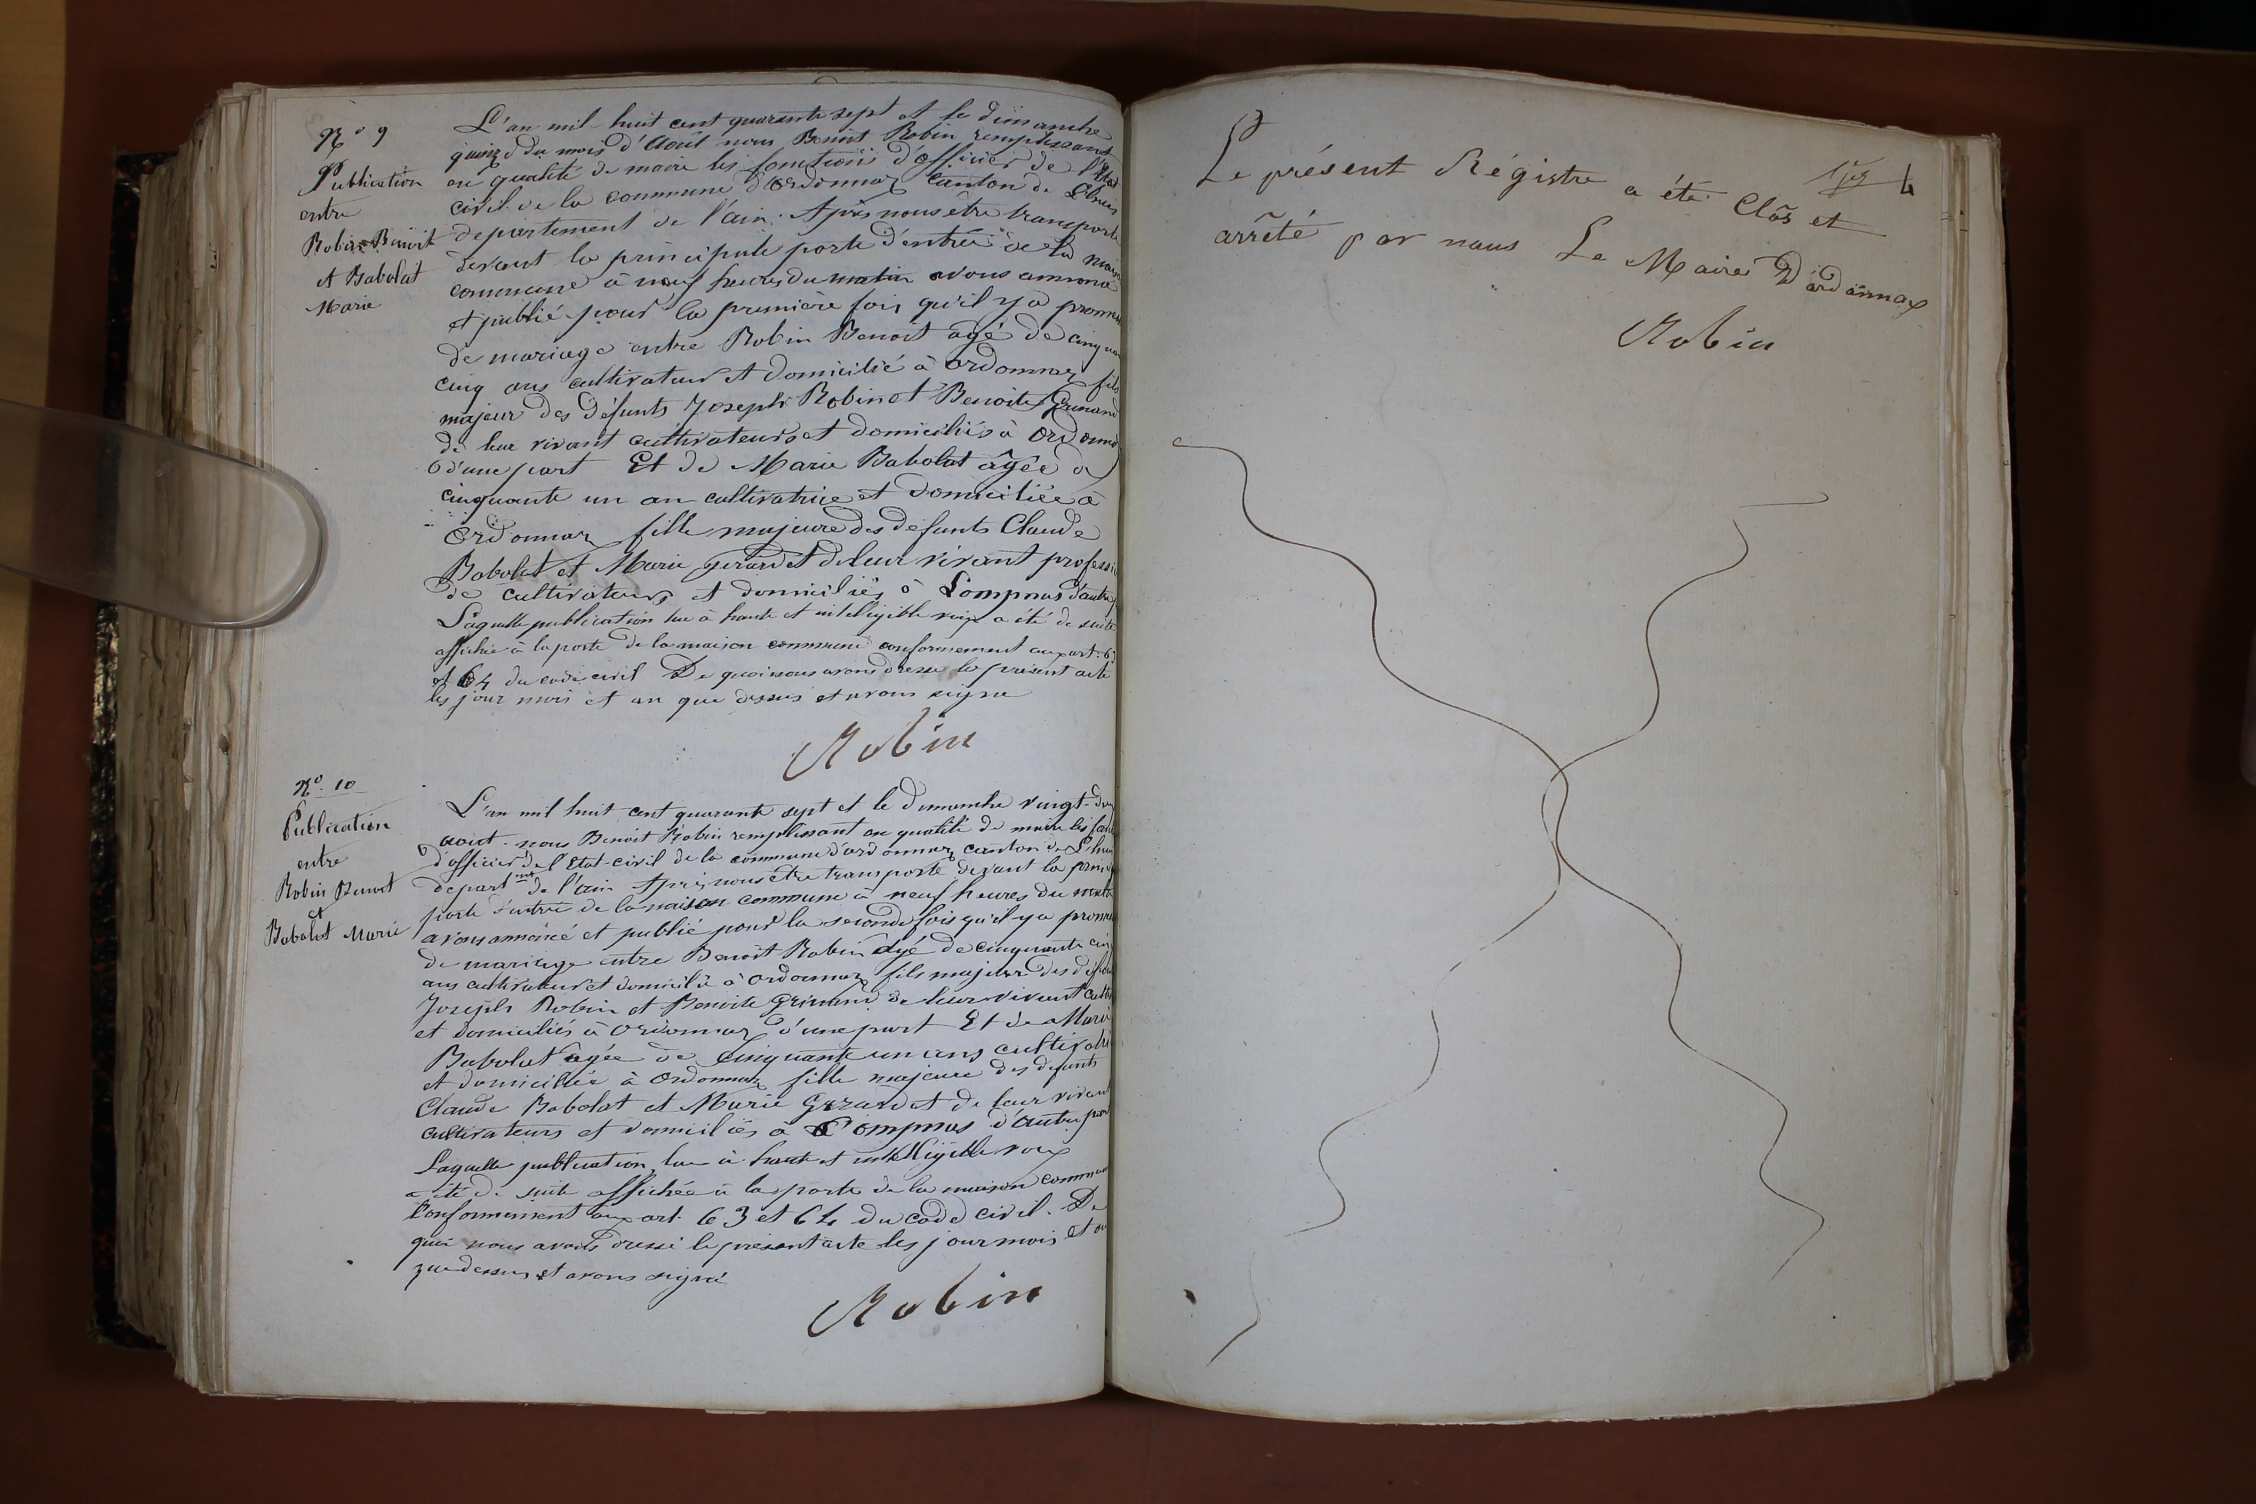 N° 9
Publication
entre
Robin Benoit
et Babolat
Marie
L'an mil huit cent quarante sept et le dimanche
quinze du mois d'Août nous Benoit Robin remplissant
en qualité de maire les fonctions d'officier de l'Etat
civil de la commune d'Ordonnaz canton de Lhuis
département de l'ain. Après nous être transporté
devant la principale porte d'entrée de la mais
commune à neuf heures du matin avons annoncé
et publié pour la première fois qu'il y a promes
de mariage entre Robin Benoit agé de cinquan
cinq ans cultivateur et domicilié à Ordonnaz fils
majeur des défunts Joseph Robin et Benoite Grinand
de leur vivant cultivateurs et domiciliés à Ordonna
d'une part Et de Marie Babolat âgée de
cinquante un an cultivatrice et domiciliée à
Ordonnaz fille majeure des défunts Claude
Babolat et Marie Girardet de leur vivant professi
de cultivateurs et domiciliés à Lompnas d'autre
Laquelle publication lue à haute et intelligible voix a été de suite
affichée à la porte de la maison commune conformement aux art. 63
et 64 du code civil De quoi nous avons dressé le présent acte
les jour mois et an que dessus et avons signé
Robin
N° 10
Publication
entre
Robin Benoit
et
Babolat Marie
L'an mil huit cent quarante sept et le dimanche vingt-deux
aout. nous Benoit Robin remplissant en qualité de maire les fonc
d'officier de l'Etat-civil de la commune d'ordonnaz canton de Lhui
depart.mt de l'ain Après nous être transporté devant la princi
porte d'entrée de la maison commune à neuf heures du matin
avons annoncé et publié pour la seconde fois qu'il y a promes
de mariage entre Benoit Robin âgé de cinquante cinq
ans cultivateur et domicilié à Ordonnaz fils majeur des défun
Joseph Robin et Benoite Grinand de leur vivant culti
et domiciliés à Ordonnaz d'une part Et de Marie
Babolat âgée de Cinquante un ans cultivatri
et domiciliée à Ordonnaz fille majeure des defunts
Claude Babolat et Marie Girardet de leur vivant
cultivateurs et domiciliés à Lompnas d'autre part
Laquelle publication lue à haute et intelligible voix
a été de suite affichée à la porte de la maison commune
Conformement aux art. 63 et 64 du code civil. De
quoi nous avons dressé le présent acte les jour mois et an
que dessus et avons signé
Robin
4
Le présent Régistre a été Clôs et
arrêté par nous Le Maire D'ordonnax
Robin